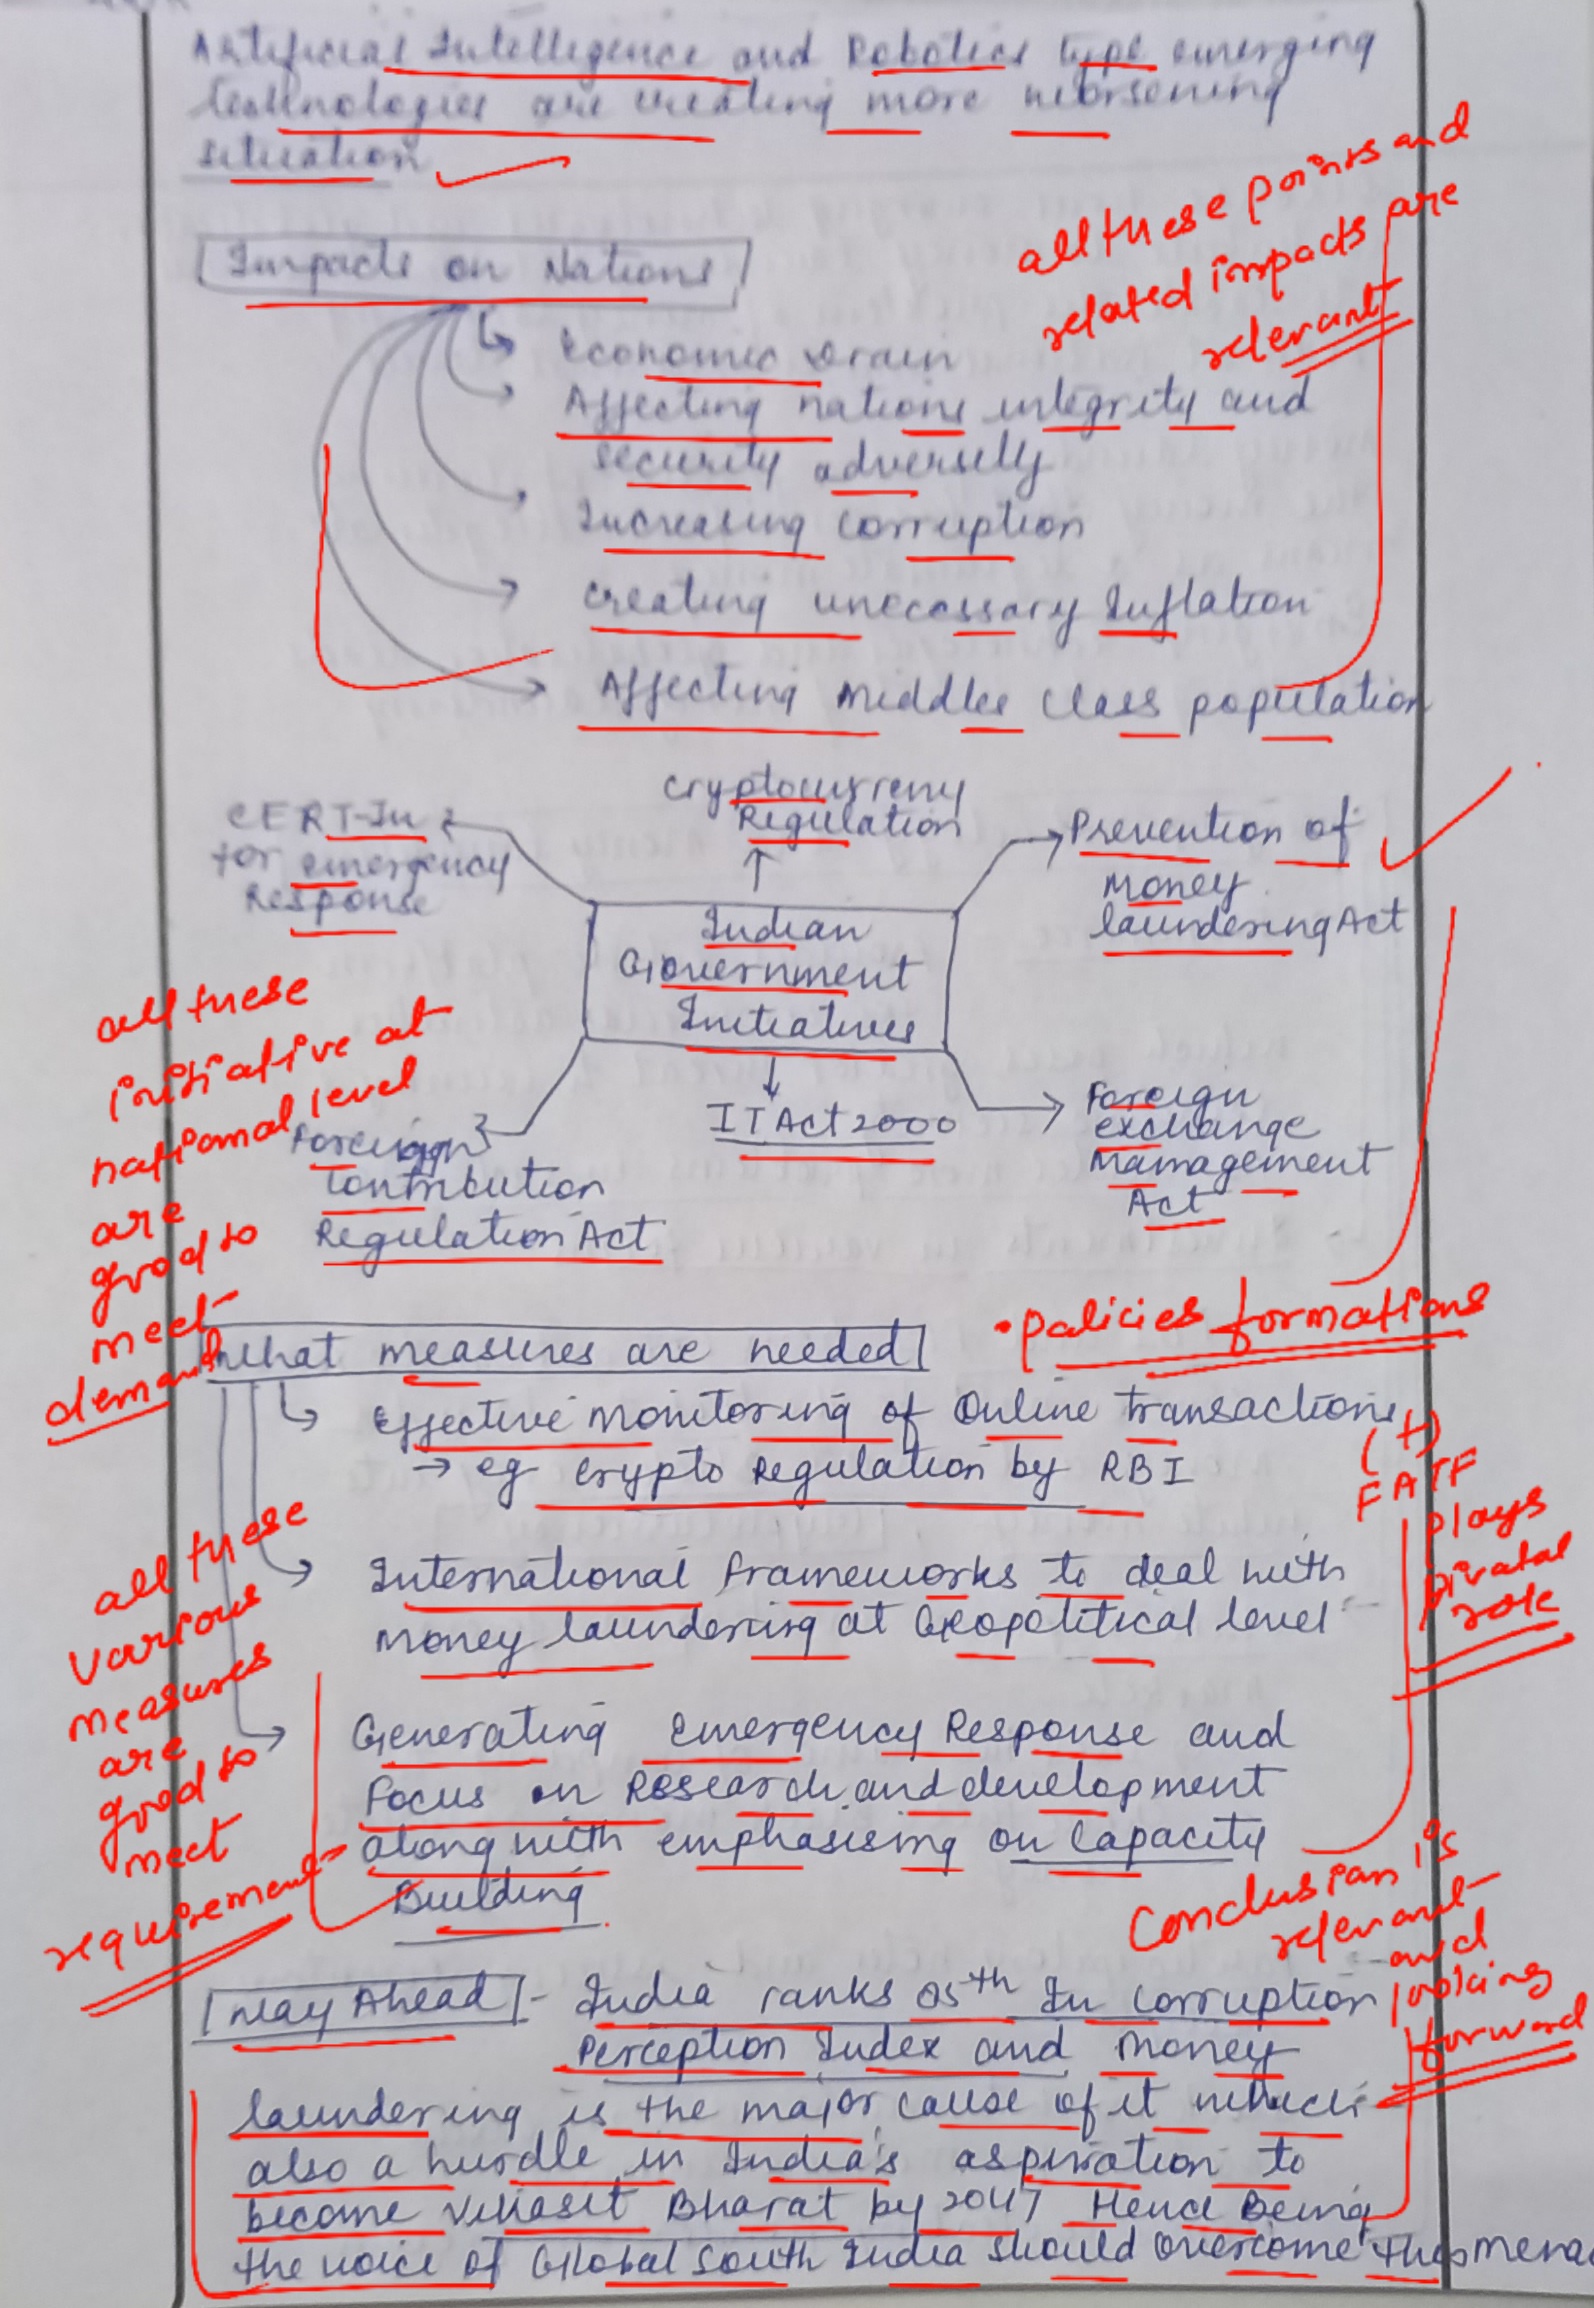 Artificial Intelligence and Robotics type emerging
technologies are creating more worsening
situation
all these points and
related impacts are
relevant
Impacts on Nations
Economic Drain
Affecting nations integrity and
security adversely
Increasing corruption
creating unecessary Inflation
Affecting Middle Class population
Cryptocurreny
Regulation
CERT-In
for emergency
Response
Prevention of
Money
laundering Act
Indian
Government
Initiatives
IT Act 2000
Foreign
Contribution
Regulation Act
Foreign
exchange
Management
Act
all these
initiative at
national level
are
good to
meet
demand
• policies formations
What measures are needed
Effective Monitoring of Online transactions
→ eg crypto Regulation by RBI
(+)
FATF
plays
pivotal
role
International frameworks to deal with
Money laundering at Geopolitical level
all these
various
measures
are
good to
meet
requirement
Generating Emergency Response and
Focus on Research and development
along with emphasising on Capacity
Building
Conclusion is
relevant
and
looking
forward
Way Ahead - India ranks 85th In Corruption
Perception Index and Money
laundering is the major cause of it which
also a hurdle in India's aspiration to
become Vikasit Bharat by 2047 Hence Being
the voice of Global South India should overcome this